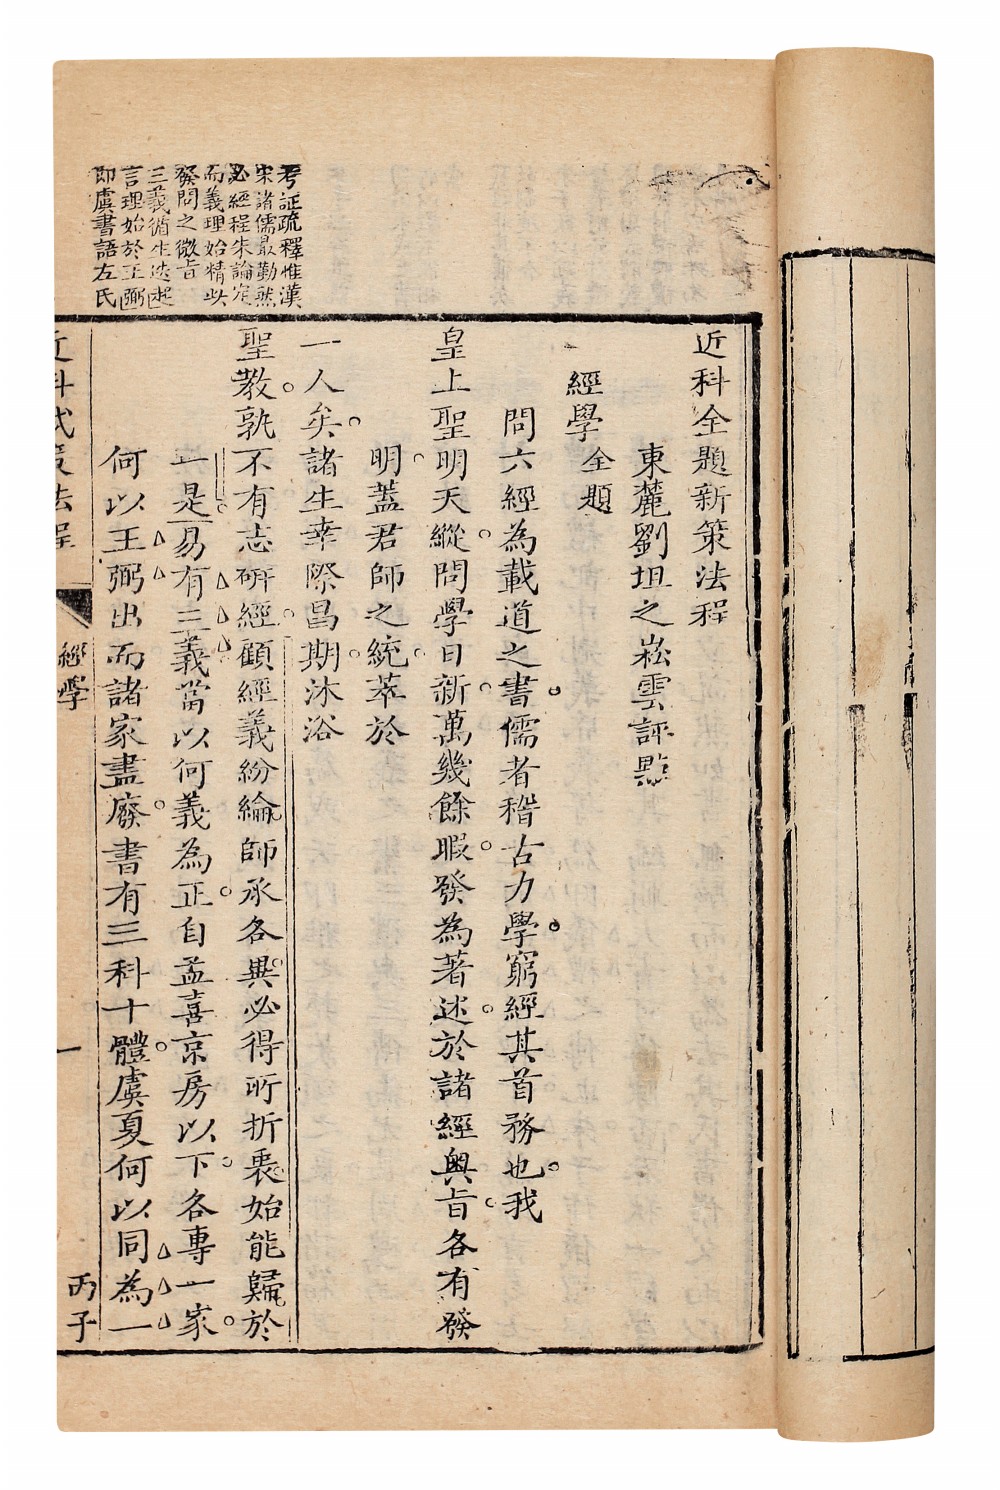 考証疏釋惟漢
宋諸儒最勤然
必經程朱論定
而義理始精此
發問之微旨
三義循生迭起
言理始於王弼
即虞書語左氏
近科全題新策法程
東麓劉坦之崧雲評點
經學 全題
問六經為載道之書儒者稽古力學窮經其首務也我
皇上聖明天縱問學日新萬幾餘暇發為著述於諸經奧旨各有發
明蓋君師之統萃於
一人矣諸生幸際昌期沐浴
聖教孰不有志硏經顧經義紛綸師承各異必得所折衷始能歸於
一是易有三義當以何義為正自孟喜京房以下各專一家
何以王弼出而諸家盡廢書有三科十體虞夏何以同為一
近科試策法程 經學 一 丙子